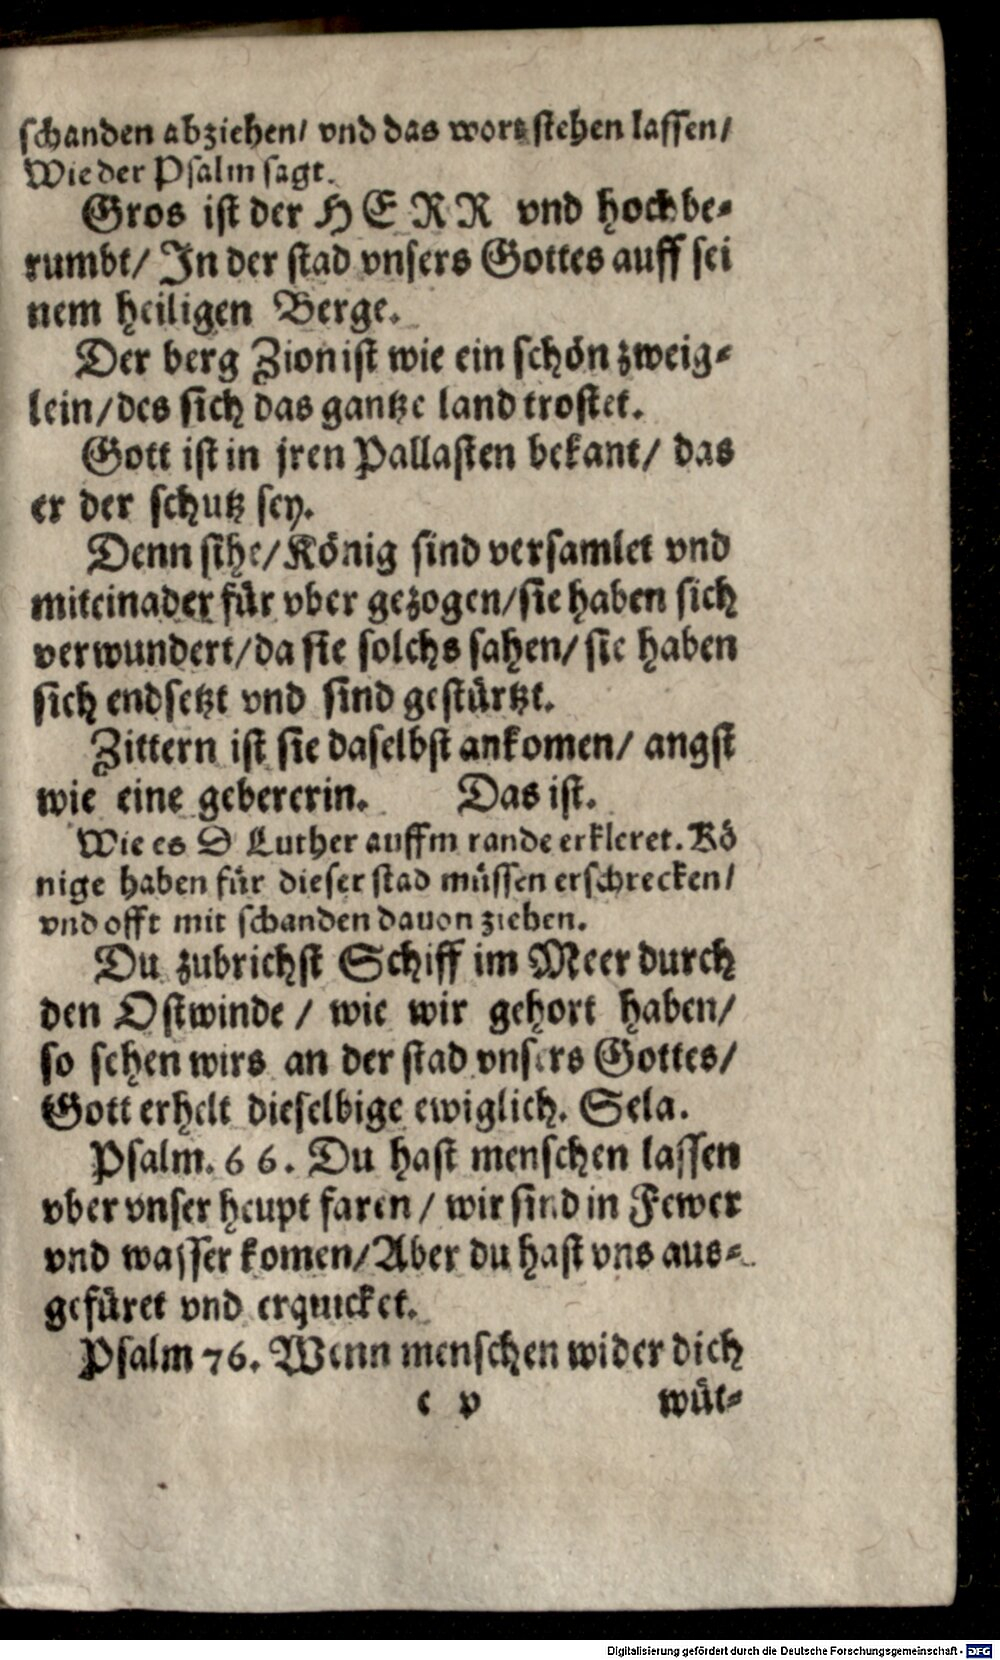 schanden abziehen/ vnd das wort stehen lassen/
Wie der Psalm sagt.
Gros ist der HERR vnd hochbe-
rumbt/ In der stad vnsers Gottes auff sei
nem heiligen Berge.
Der berg Zion ist wie ein schön zweig-
lein/ des sich das gantze land trostet.
Gott ist in jren Pallasten bekant/ das
er der schutz sey.
Denn sihe/ König sind versamlet vnd
miteinader für vber gezogen/ sie haben sich
verwundert/ da sie solchs sahen/ sie haben
sich endsetzt vnd sind gestürtzt.
Zittern ist sie daselbst ankomen/ angst
wie eine gebererin. Das ist.
Wie es D Luther auffm rande erkleret. Kö
nige haben für dieser stad müssen erschrecken/
vnd offt mit schanden dauon ziehen.
Du zubrichst Schiff im Meer durch
den Ostwinde/ wie wir gehort haben/
so sehen wirs an der stad vnsers Gottes/
Gott erhelt dieselbige ewiglich. Sela.
Psalm. 66. Du hast menschen lassen
vber vnser heupt faren/ wir sind in Fewer
vnd wasser komen/ Aber du hast vns aus-
gefüret vnd erquicket.
Psalm 76. Wenn menschen wider dich
c v wüt-
Digitalisierung gefördert durch die Deutsche Forschungsgemeinschaft - DFG